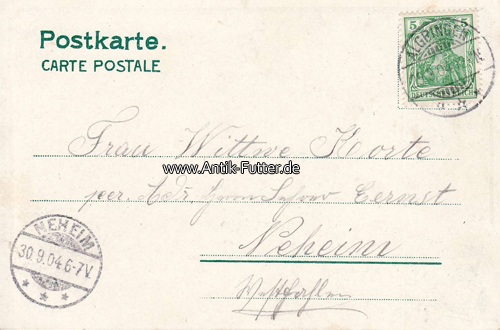 Postkarte.
CARTE POSTALE
5 5
ALGRINGEN
DEUTSCHES REICH
Frau Wittwe Korte
www.Antik-Futter.de
per Adr. Ernst
Neheim
Westfahlen
NEHEIM
30.9.04.6-7V.